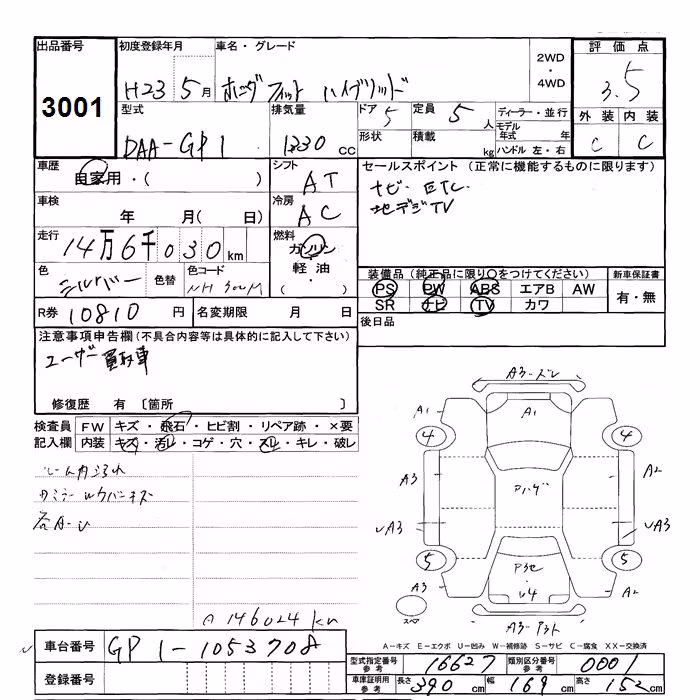 出品番号 初度登録年月 車名・グレード 評価点
3001 H23 5月 ホンダ フィット ハイブリッド 2WD ・ 4WD 3.5
型式 排気量 ドア 5 定員 5人 ディーラー・並行 外装 内装
DAA-GP1 1330 CC 形状 積載 kg モデル年式 年 ハンドル 左・右 C C
車歴 シフト セールスポイント (正常に機能するものに限ります)
自家用・( ) AT ナビ・ETC
車検 冷房 地デジTV
年 月( 日) AC
走行 燃料
14万6千030km ガソリン
色 色替 色コード 軽油 装備品 (純正品に限り○をつけてください) 新車保証書
シルバー NH 700M ・( ) PS PW ABS エアB AW 有・無
R券 10810円 名変期限 月 日 SR ナビ TV カワ
注意事項申告欄(不具合内容等は具体的に記入して下さい) 後日品
ユーザー買取車
修復歴 有 〔箇所 〕
検査員 FW キズ・飛石・ヒビ割・リペア跡・×要
記入欄 内装 キズ・汚レ・コゲ・穴・スレ・キレ・破レ
A3-ズレ
A1 A1
4 4
A3 Pハゲ A2
UA3 UA3
5 5
A3 U4 A2
スペア A3-
146024 km
A-キズ E-エクボ U-凹み W-補修跡 S-サビ C-腐食 XX-交換済
車台番号 GP1-1053708
登録番号
型式指定番号 参考 16627 類別区分番号 参考 0001
車庫証明用 参考 長さ 390 cm 幅 169 cm 高さ 152 cm